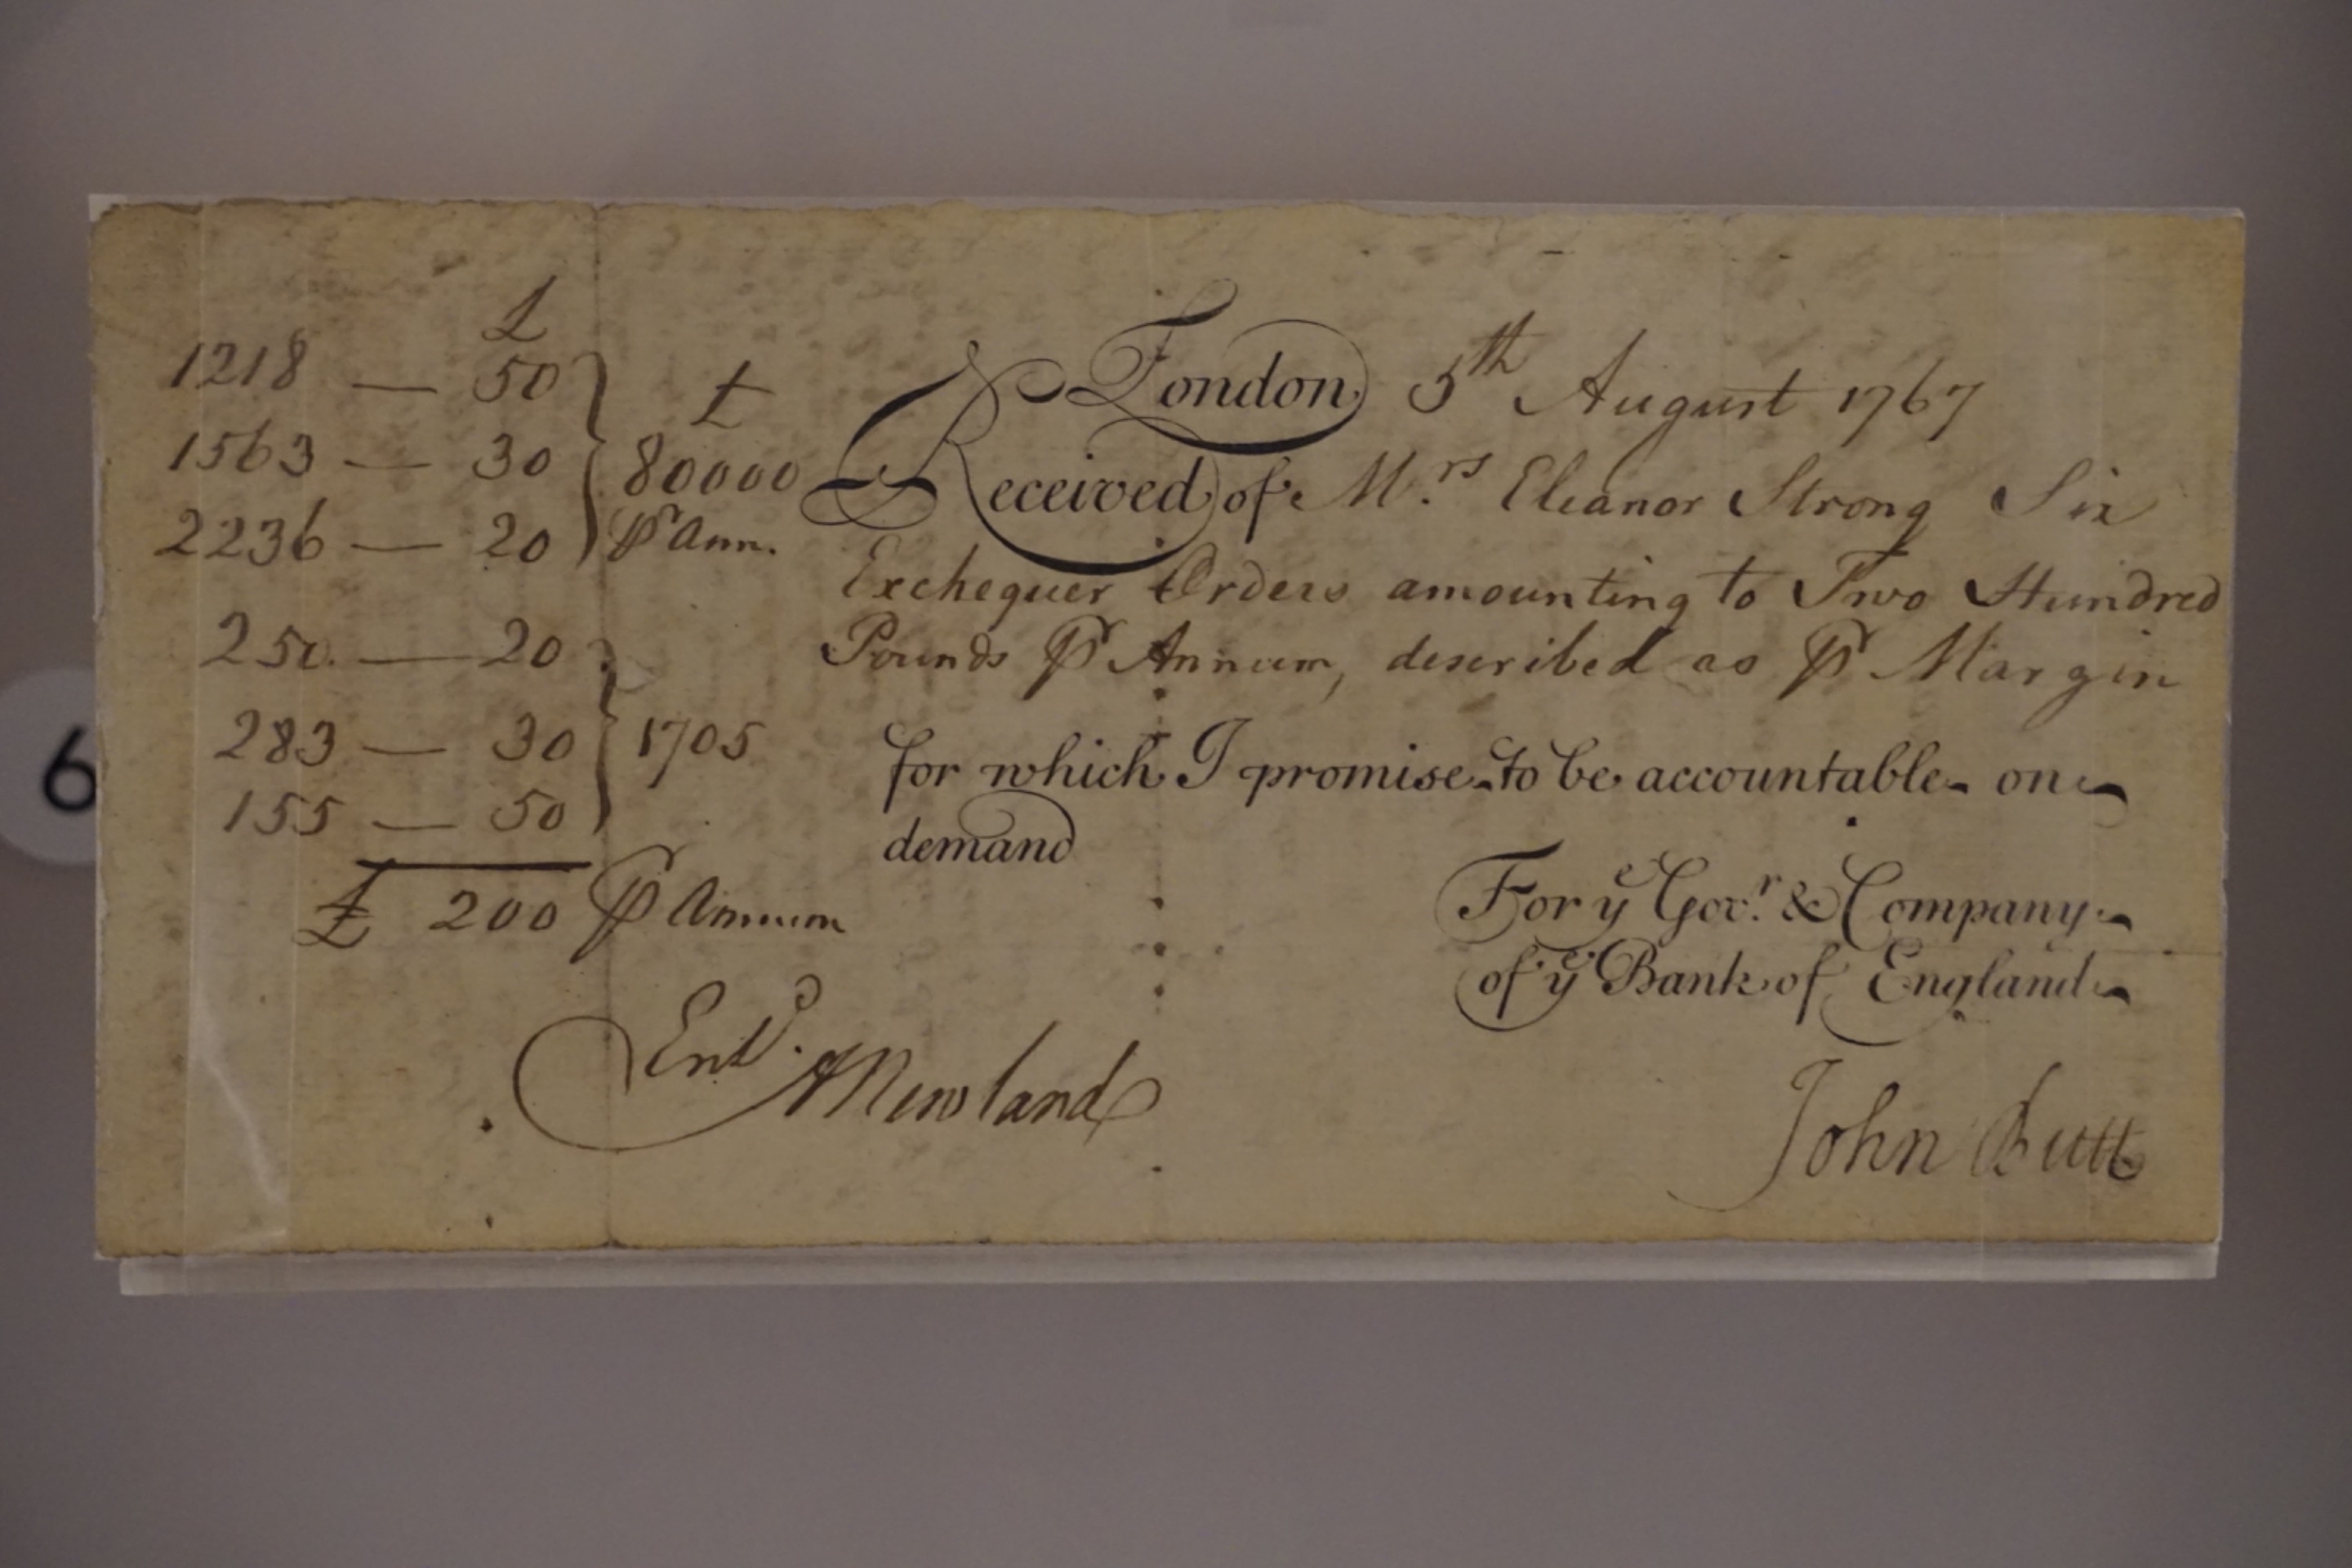 £
1218 — 50
1563 — 30
2236 — 20
£
80000
⅌ Ann.
250. — 20
283 — 30
155 — 50
1705
£ 200 ⅌ Annum
London 5th August 1767
Received of Mrs Eleanor Strong Six
Exchequer Orders amounting to Two Hundred
Pounds ⅌ Annum, described as ⅌ Margin
for which I promise to be accountable on
demand
For ye Govr. & Company
of ye Bank of England
Entd. A Newland
John Butt
6